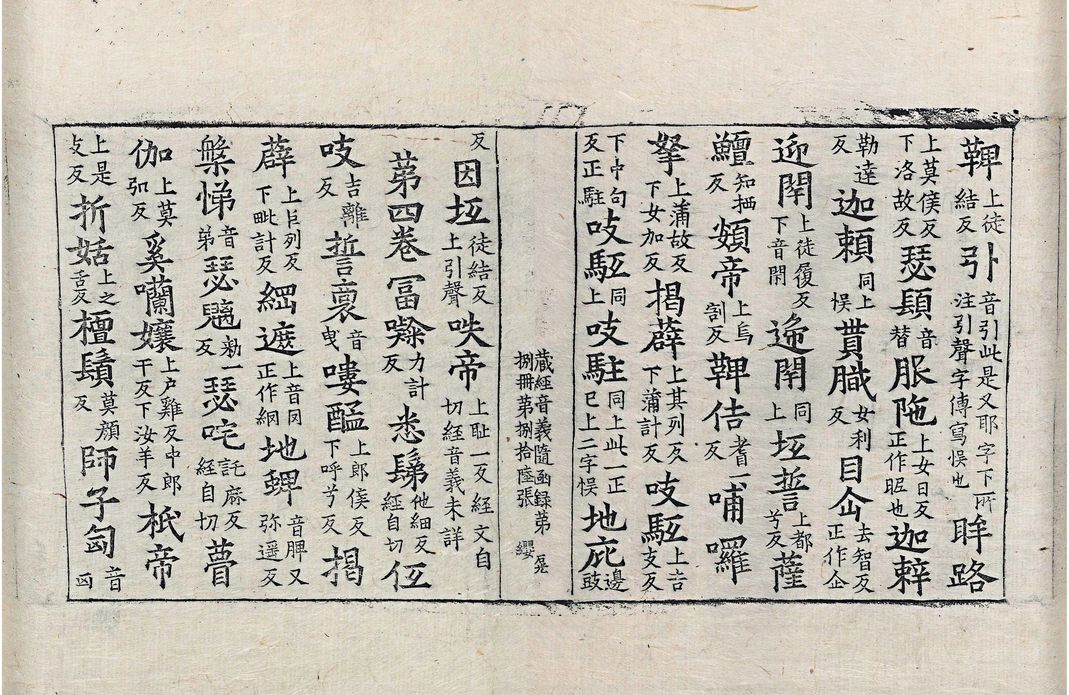 鞞上徒結反引音引此是又耶字下所注引聲字傳寫悮也眸路
上莫侯反下洛故反瑟䫂音替服陁上女日反正作昵也迦䔖
勒達反迦賴同上悮貫膱女利反目㕣去智反正作企
迎閇上徒履反下音閇逌閇同上坘誓上都兮反薩
鱣知栖反頞帝上烏割反鞞佶耆一反哺囉
拏上蒲故反下女加反揭薜上其列反下蒲計反吱駏上吉支反
下中句反正駐吱駏同上吱駐同上此一正已上二字悮地庇邊豉
藏經音義隨函録第捌冊第捌拾陸張纓
反因坘徒結反上引聲呹帝上耻一反經文自切經音義未詳
苐四卷冨㘑力計反悉髴他細反經自切伍
吱吉離反誓裒音曳嘍醯上郎侯反下呼兮反揭
薜上巨列反下毗計反綱遮上音冈正作網地蜱音脾又弥遥反
槃悌音弟瑟魑勑一反瑟咤託疨反經自切瞢
伽上莫弘反奚囒孃上户雞反中郎干反下汝羊反柢帝
上是支反折姡上之舌反檀鬚莫顔反師子匈音凶